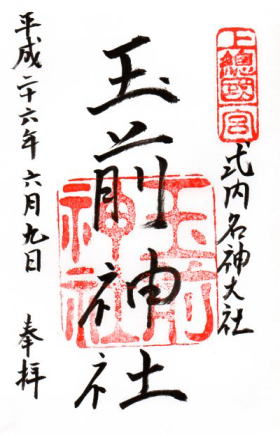 上總國一宮
式内名神大社
玉前神社
玉前神社
奉拝
平成二十六年六月九日